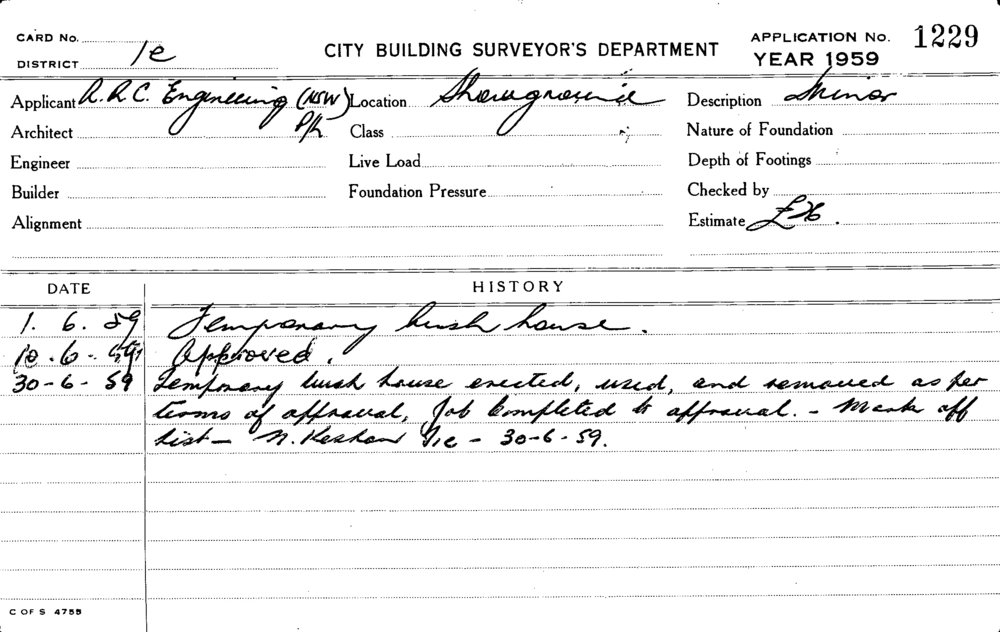 CARD No.
DISTRICT 1c
CITY BUILDING SURVEYOR'S DEPARTMENT
APPLICATION No. 1229
YEAR 1959
Applicant A.R.C. Engineering (NSW) P/L Location Showground Description Minor
Architect Class Nature of Foundation
Engineer Live Load Depth of Footings
Builder Foundation Pressure Checked by
Alignment Estimate
DATE HISTORY
1. 6. 59 Temporary bush house.
10. 6. 59 Approved.
30-6-59 Temporary bush house erected, used, and removed as per
terms of approval, Job completed to approval. - Mark off
list - N. 1c - 30-6-59.
C OF S 4755